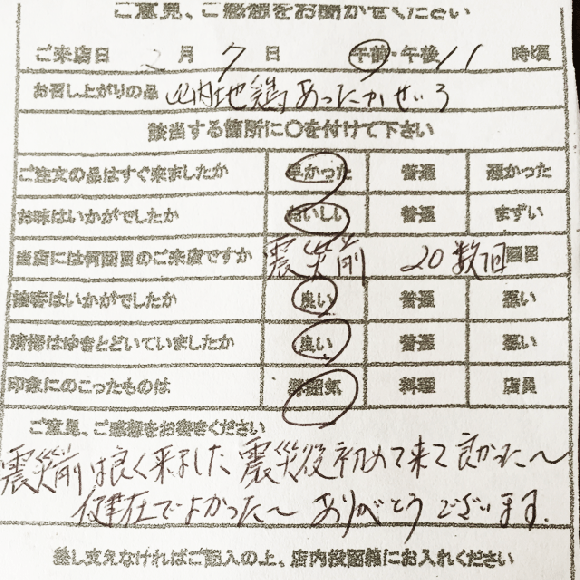 ご意見、ご感想をお聞かせください
ご来店日 2月7日 午前・午後 11時頃
お召し上がりの品 地鶏あったかせいろ
該当する箇所に〇を付けて下さい
ご注文の品はすぐ来ましたか 早かった 普通 遅かった
お味はいかがでしたか おいしい 普通 まずい
当店には何回目のご来店ですか 震災前 20数回 回目
接客はいかがでしたか 良い 普通 悪い
清掃はゆきとどいていましたか 良い 普通 悪い
印象にのこったものは 雰囲気 料理 店員
ご意見、ご感想をお書きください
震災前は良く来ました 震災後初めて来て良かった〜
健在でよかった〜 ありがとうございます.
差し支えなければご記入の上、店内投函箱にお入れください